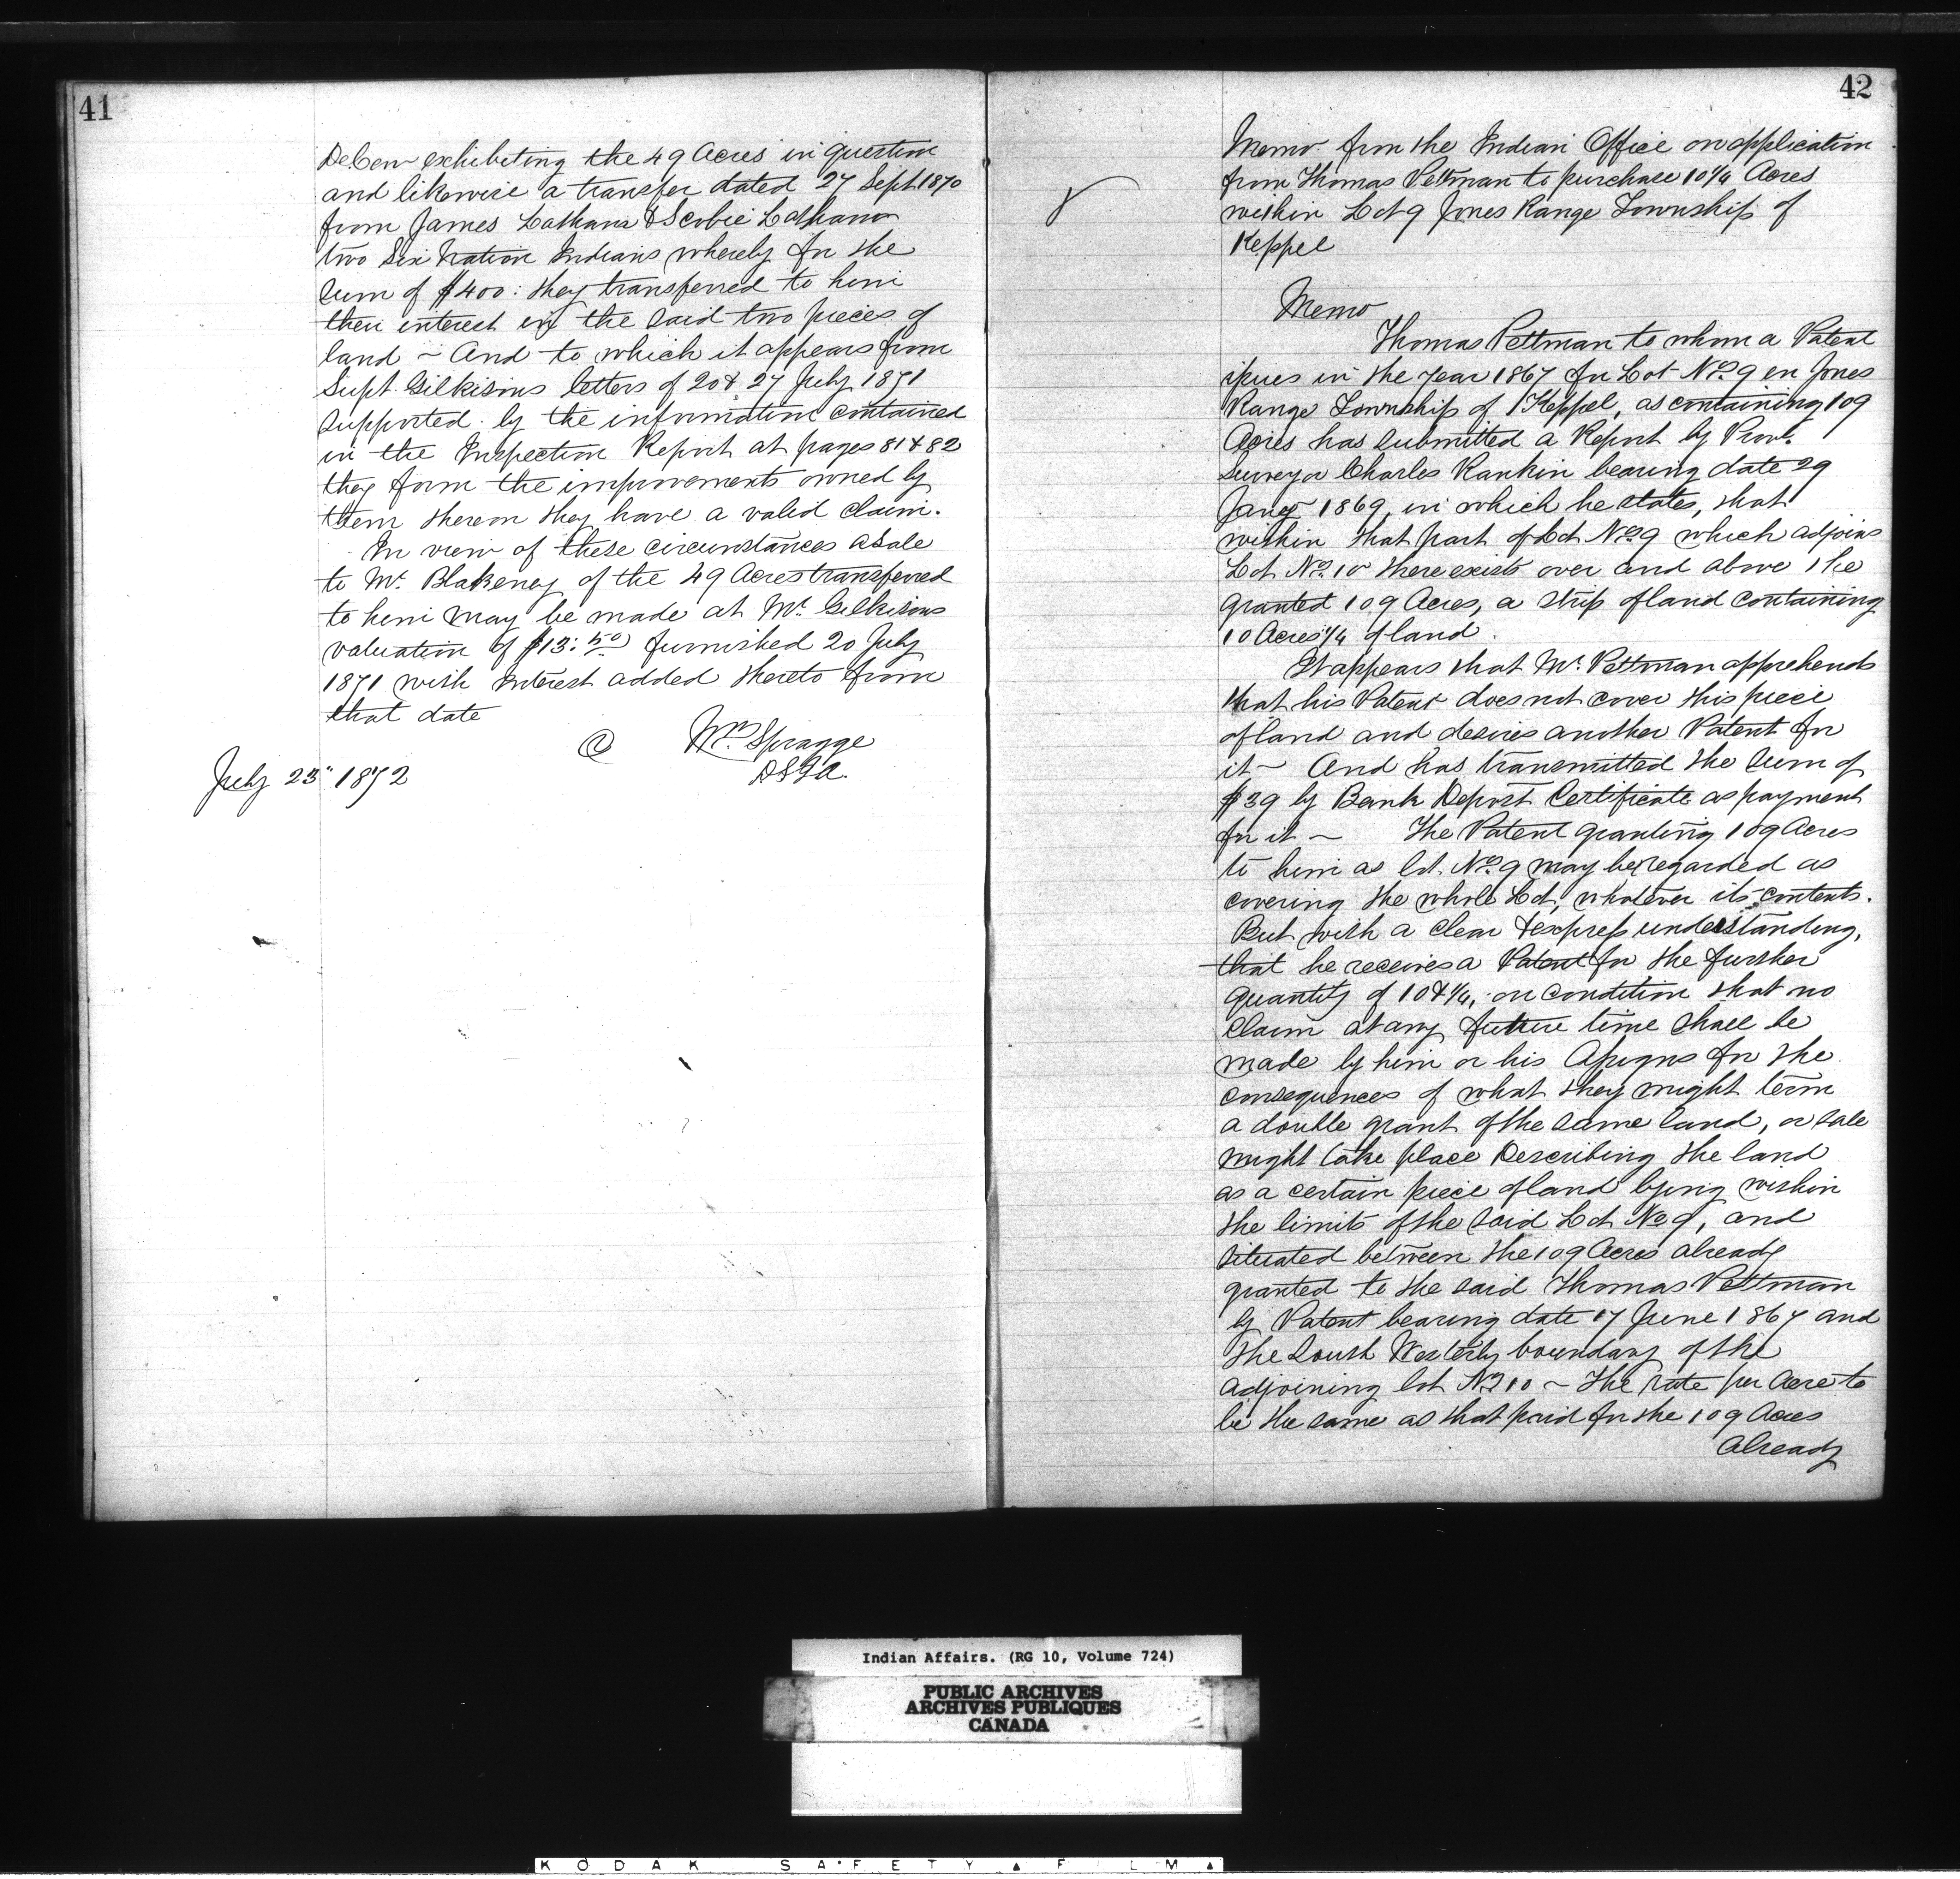 41
DeCew exhibiting the 49 Acres in question
and likewise a transfer dated 27 Sept 1870
from James Lathana & Scobie Lathana
two Six Nation Indians whereby for the
sum of $400: they transferred to him
their interest in the said two pieces of
land ~ And to which it appears from
Supt. Gilkisons letters of 20 & 27 July 1871
supported by the information contained
in the Inspection Report at pages 81 & 82
they form the improvements owned by
them thereon they have a valid claim.
In view of these circumstances a Sale
to Mr. Blakeney of the 49 Acres transferred
to him may be made at Mr Gilkisons
valuation of $13:50 furnished 20 July
1871 with Interest added thereto from
that date
@ Wm. Spragge
DSIA.
July 23" 1872
42
Memo from the Indian Office on application
from Thomas Pettman to purchase 10¼ Acres
within Lot 9 Jones Range Township of
Keppel
Memo
Thomas Pettman to whom a Patent
issues in the year 1867 for Lot No. 9 en Jones
Range Township of Keppel, as containing 109
Acres has submitted a Report by Provl.
Surveyor Charles Rankin bearing date 29
Jany 1869, in which he states, that
within that part of Lot No. 9 which adjoins
Lot No. 10 there exists over and above the
granted 109 Acres, a strip of land containing
10 Acres ¼ of land.
It appears that Mr. Pettman apprehends
that his Patent does not cover this piece
of land and desires another Patent for
it ~ And has transmitted the sum of
$39 by Bank Deposit Certificate as payment
for it ~ The Patent granting 109 Acres
to him as lot. No. 9 may be regarded as
covering the whole Lot, whatever its contents.
But with a clear & express understanding,
that he receives a Patent for the further
quantity of 10 & ¼, on condition that no
claim at any future time shall be
made by him or his Assigns for the
consequences of what they might term
a double grant of the same land, a sale
might take place Describing the land
as a certain piece of land lying within
the limits of the said Lot No 9, and
situated between the 109 Acres already
granted to the said Thomas Pettman
by Patent bearing date 17 June 1867 and
the South Westerly boundary of the
adjoining lot No 10 ~ The rate per Acre to
be the same as that paid for the 109 Acres
already
Indian Affairs. (RG 10, Volume 724)
PUBLIC ARCHIVES
ARCHIVES PUBLIQUES
CANADA
KODAK SAFETY ▲ FILM ▲